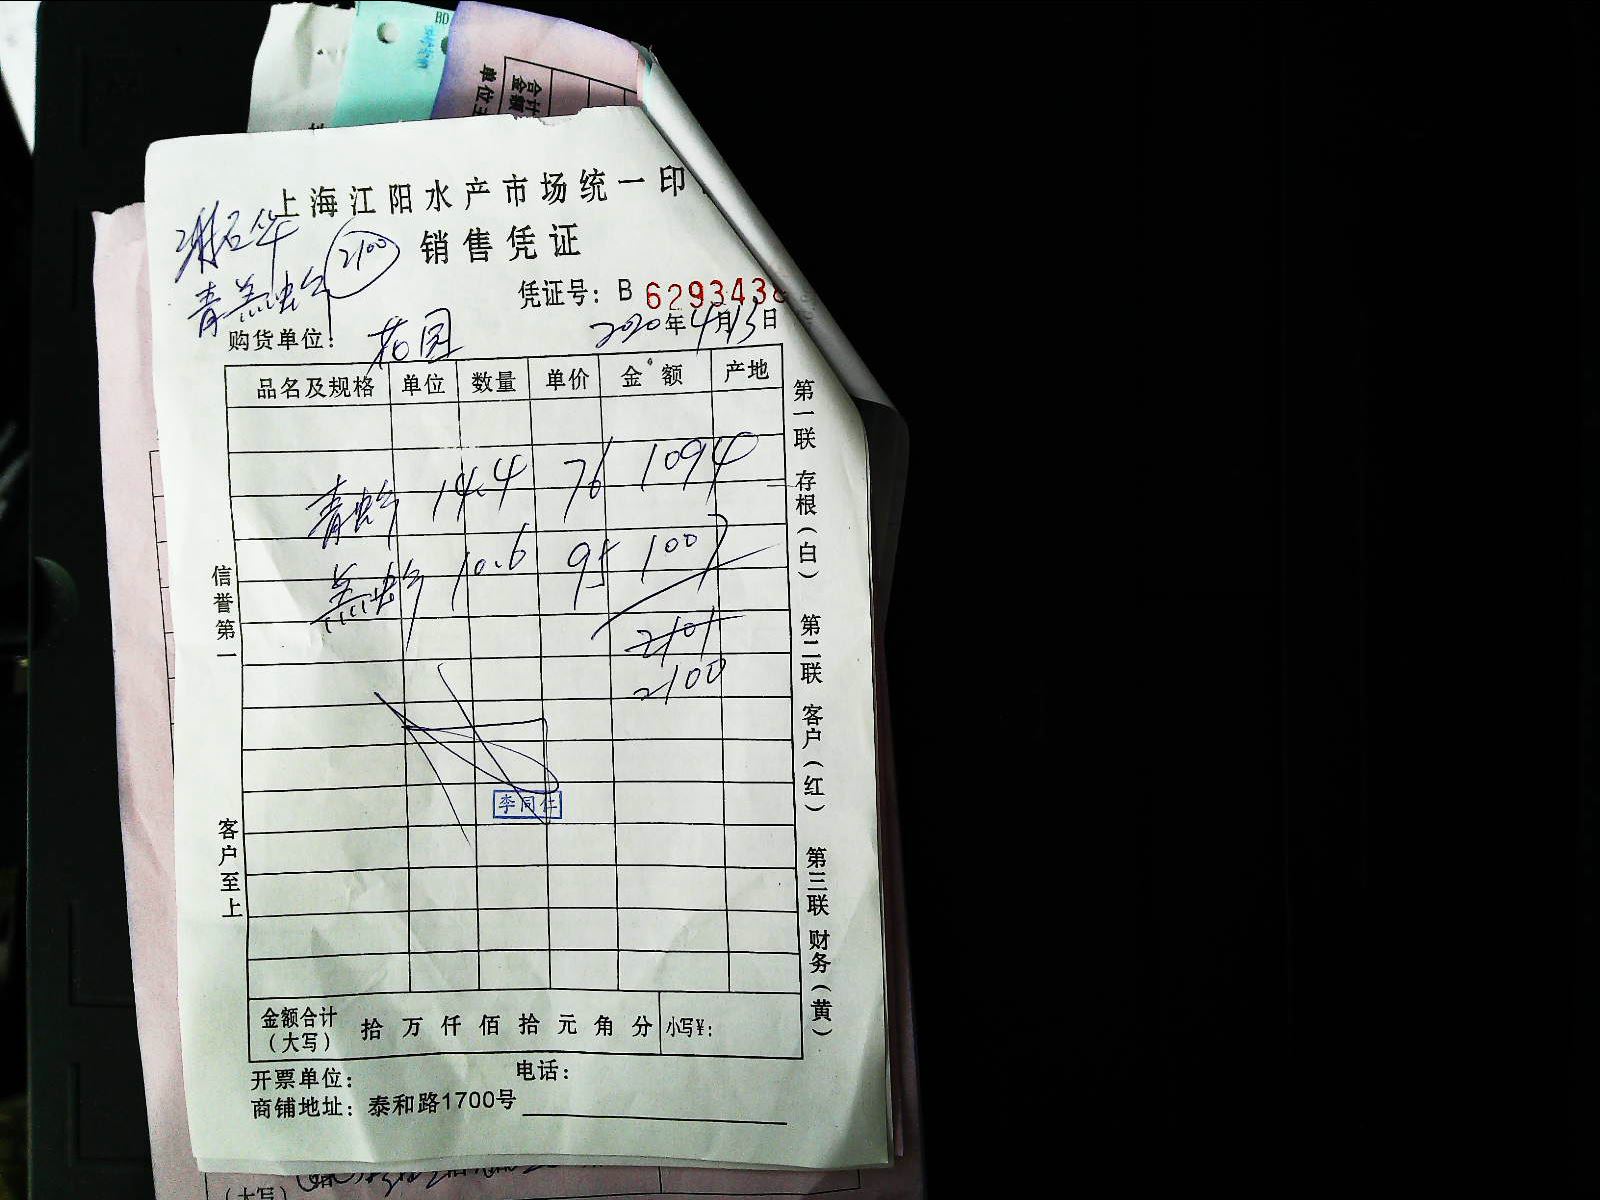 BD
合计
金额
单位
上海江阳水产市场统一印
销售凭证
谢石华
2100
青羔虾
凭证号：B 6293438
购货单位： 花园
2020年4月13日
品名及规格 单位 数量 单价 金额 产地
青虾 14.4 76 1094
羔虾 10.6 95 1007
2101
2100
李同仁
信誉第一
客户至上
第一联 存根（白） 第二联 客户（红） 第三联 财务（黄）
金额合计（大写） 拾 万 仟 佰 拾 元 角 分 小写¥：
开票单位： 电话：
商铺地址：泰和路1700号
（大写）